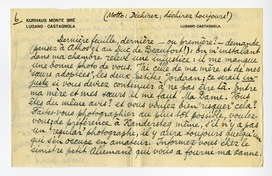 6
KURHAUS MONTE BRÉ
LUGANO - CASTAGNOLA
(Motto: Déchirer, déchirez toujours!)
LUGANO - CASTAGNOLA
Dernière feuille, dernière – ou première? – demande
(pensez à Athos et au Duc de Beaufort!): on m'installant
dans ma chambre relève une injustice: il me manque
une bonne photo de vous. Ni celle de ma mère et de mes
sœurs adoptées, les deux petites Jordaan; ce serait un
juste si vous deviez continuer à ne pas être là. Entre
ma mère et mes sœurs il me faut Ma Dame. Vous
êtes du même avis? et vous voulez bien "risquer" cela?
Faites-vous photographier au plus tôt possible, voulez-
vous; de préférence à Randersteen même, s'il n'y a pas
un "regular" photographe, il y aura toujours quelqu'un
qui s'en occupe en amateur. Informez-vous chez le
sinistre petit Allemand qui vous a fourni ma canne.